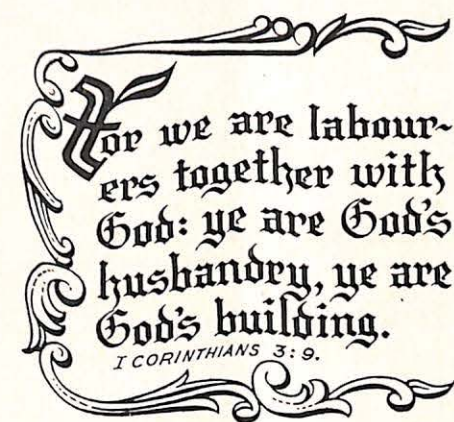 For we are labour-
ers together with
God: ye are God's
husbandry, ye are
God's building.
I CORINTHIANS 3:9.